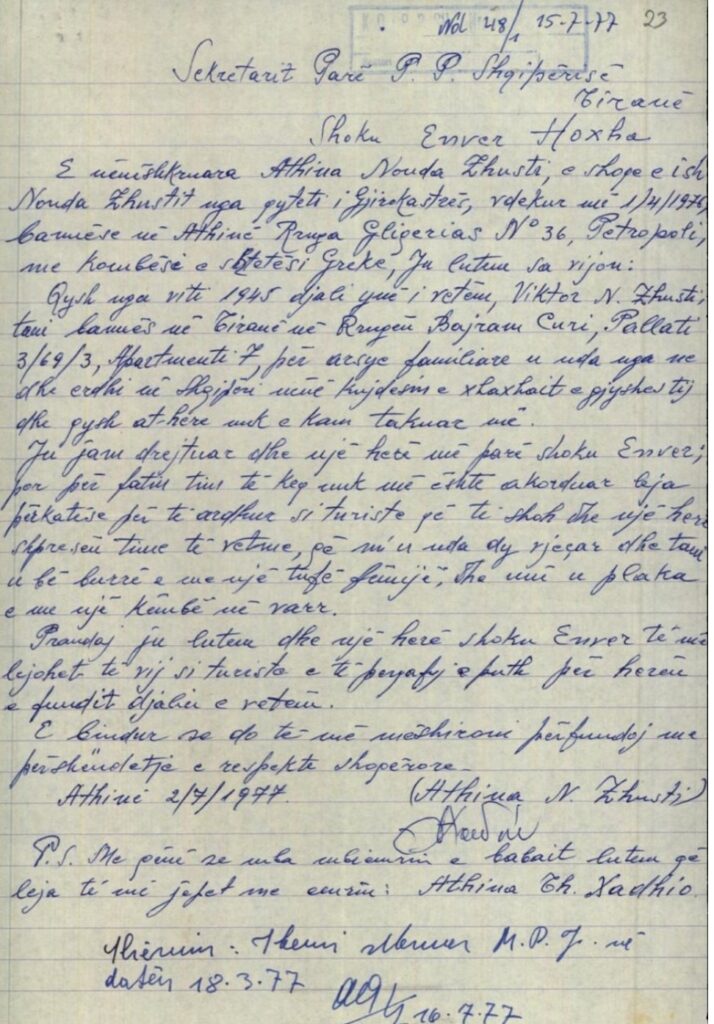 Nd 48/1 15-7-77 23
Sekretarit Parë P. P. Shqipërisë
Tiranë
Shoku Enver Hoxha
E nënëshkruara Athina Nonda Zhusti, e shoqe e ish
Nonda Zhustit nga qyteti i Gjirokastrës, vdekur më 1/4/1976,
banuëse në Athinë Rruga Gligerias N° 36, Petropoli,
me kombësë e shtetësi Greke, Ju lutem sa vijon:
Qysh nga viti 1945 djali ynë i vetëm, Viktor N. Zhusti,
tani banuës në Tiranë në Rrugën Bajram Curi, Pallati
3/69/3, Apartmenti 7, për arsye familiare u nda nga ne
dhe erdhi në Shqipëri nënë kujdesin e xhaxhait e gjyshes tij
dhe qysh at-here nuk e kam takuar më.
Ju jam drejtuar dhe një herë më parë shoku Enver;
por për fatin tim të keq nuk më është akorduar leja
përkatëse për të ardhur si turiste që ti shoh dhe një herë
shpresën time të vetme, që m'u nda dy vjeçar dhe tani
u bë burrë e me një tufë fëmijë, dhe unë u plaka
e me një këmbë në varr.
Prandaj ju lutem dhe një herë shoku Enver të më
lejohet të vij si turiste e të përqafoj e puth për herën
e fundit djalin e vetëm.
E bindur se do të më mëshironi përfundoj me
përshëndetje e respekte shoqërore.
Athinë 2/7/1977. (Athina N. Zhusti)
P.S. Me qënë se mba mbiemrin e babait lutem që
leja të më jepet me emrin: Athina Th. Xadhio.
Shënim: Ikemi M.P.J. në
datën 18.3.77
16.7.77